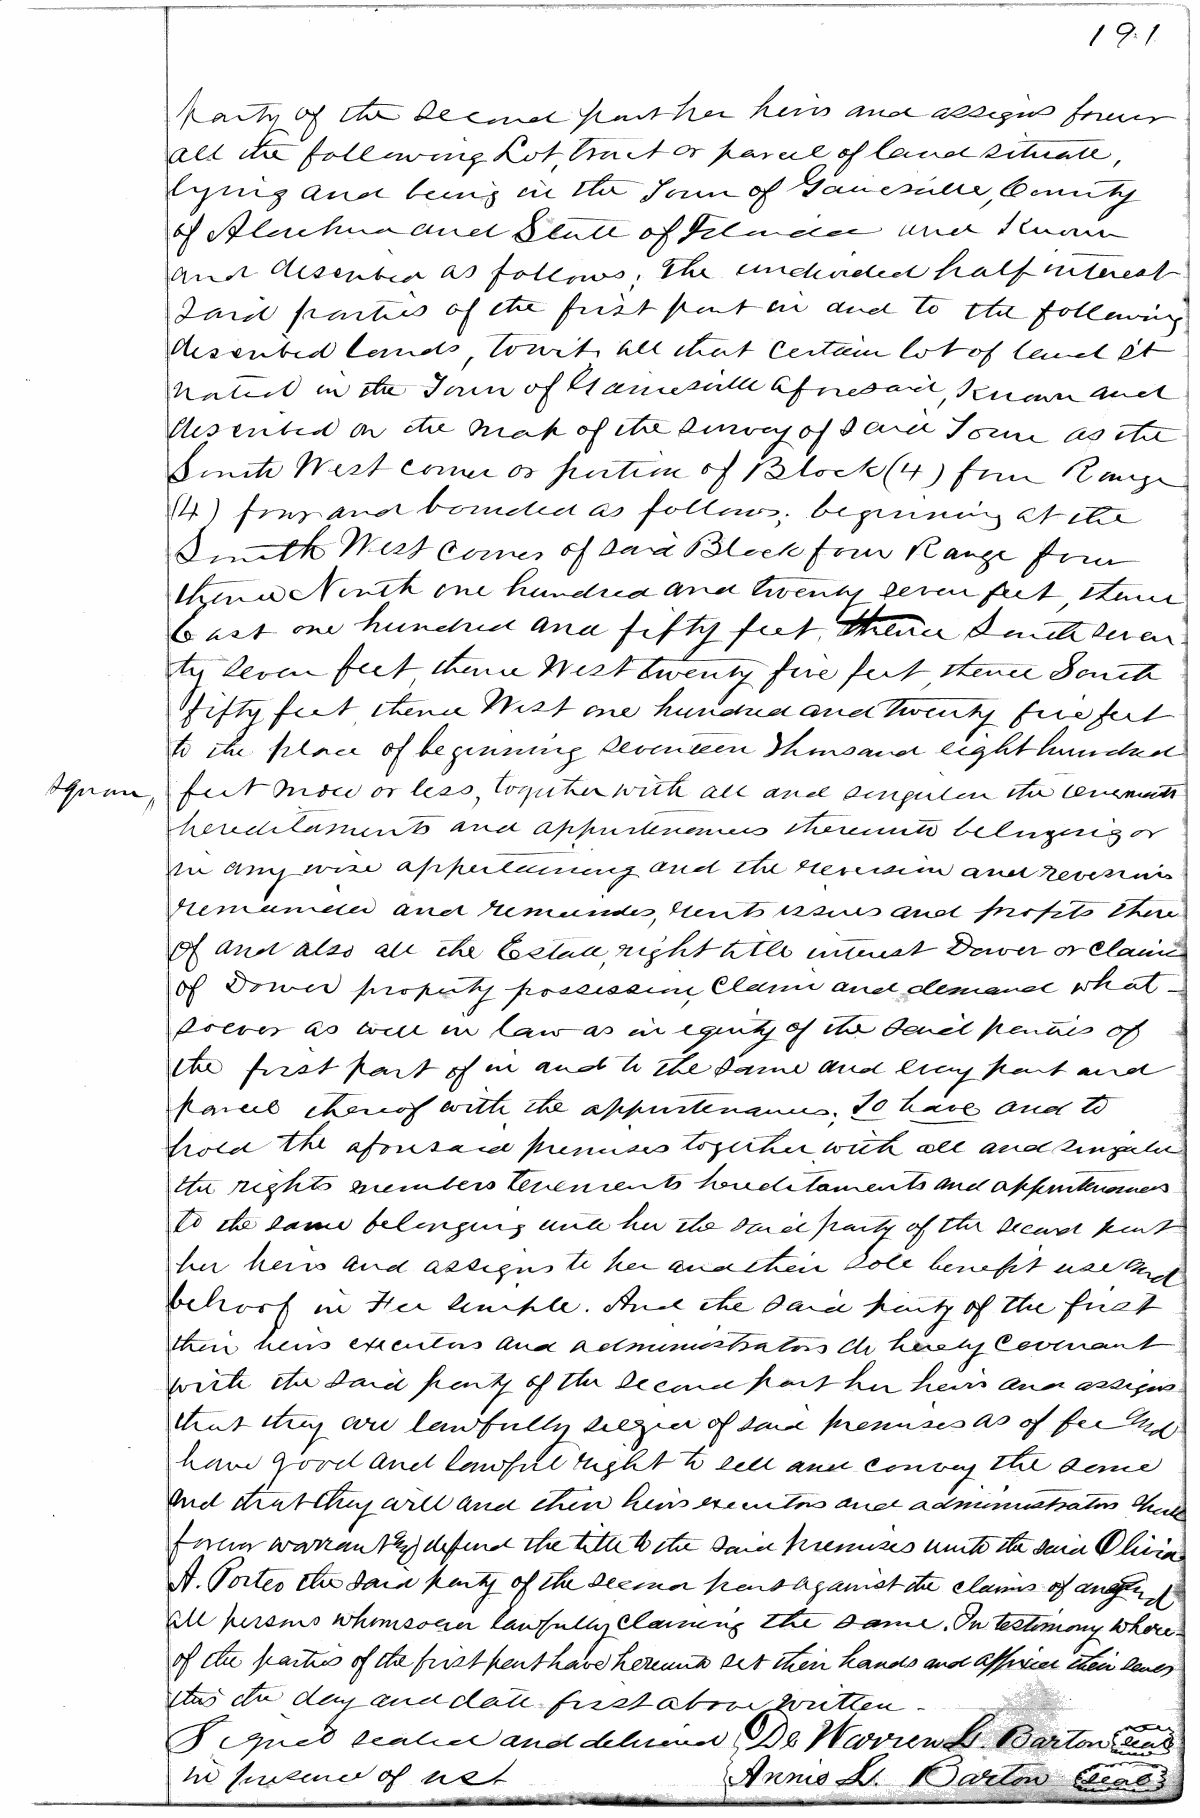 191
party of the second part her heirs and assigns forever
all the following Lot, tract or parcel of land situate,
lying and being in the Town of Gainesville, County
of Alachua and State of Florida and Known
and described as follows; The undivided half interest
Said parties of the first part in and to the following
described lands, towit, all that certain lot of land sit
uated in the Town of Gainesville aforesaid, Known and
described on the map of the survey of said Town as the
South West corner or portion of Block (4) four Range
(4) four and bounded as follows; beginning at the
South West corner of said Block four Range four
thence North one hundred and twenty seven feet, thence
East one hundred and fifty feet, thence South seven
ty seven feet, thence West twenty five feet, thence South
fifty feet, thence West one hundred and twenty five feet
to the place of beginning seventeen thousand eight hundred
square, feet more or less, together with all and singular the tenements
hereditaments and appurtenances thereunto belonging or
in any wise appertaining and the reversion and reversions
remainder and remainders, rents issues and profits there
of and also all the Estate, right title interest Dower or Claim
of Dower property possession, Claim and demand what-
soever as well in law as in equity of the said parties of
the first part of in and to the same and every part and
parcel thereof with the appurtenances; To have and to
hold the aforesaid premises together with all and singular
the rights members tenements hereditaments and appurtenances
to the same belonging unto her the said party of the second part
her heirs and assigns to her and their sole benefit use and
behoof in Fee simple. And the said party of the first
their heirs executors and administrators do hereby Covenant
with the said party of the second part her heirs and assigns
that they are lawfully seized of said premises as of fee and
have good and lawful right to sell and convey the same
and that they will and their heirs executors and administrators shall
forever warrant & defend the title to the said premises unto the said Olivia
A. Porter the said party of the second part against the claims of any and
all persons whomsoever lawfully claiming the same. In testimony where-
of the parties of the first part have hereunto set their hands and affixed their seals
this the day and date first above written.
Signed sealed and delivered De Warren G. Barton seal
in presence of us Annie L. Barton seal